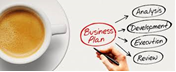 Business
Plan
Analysis
Development
Execution
Review